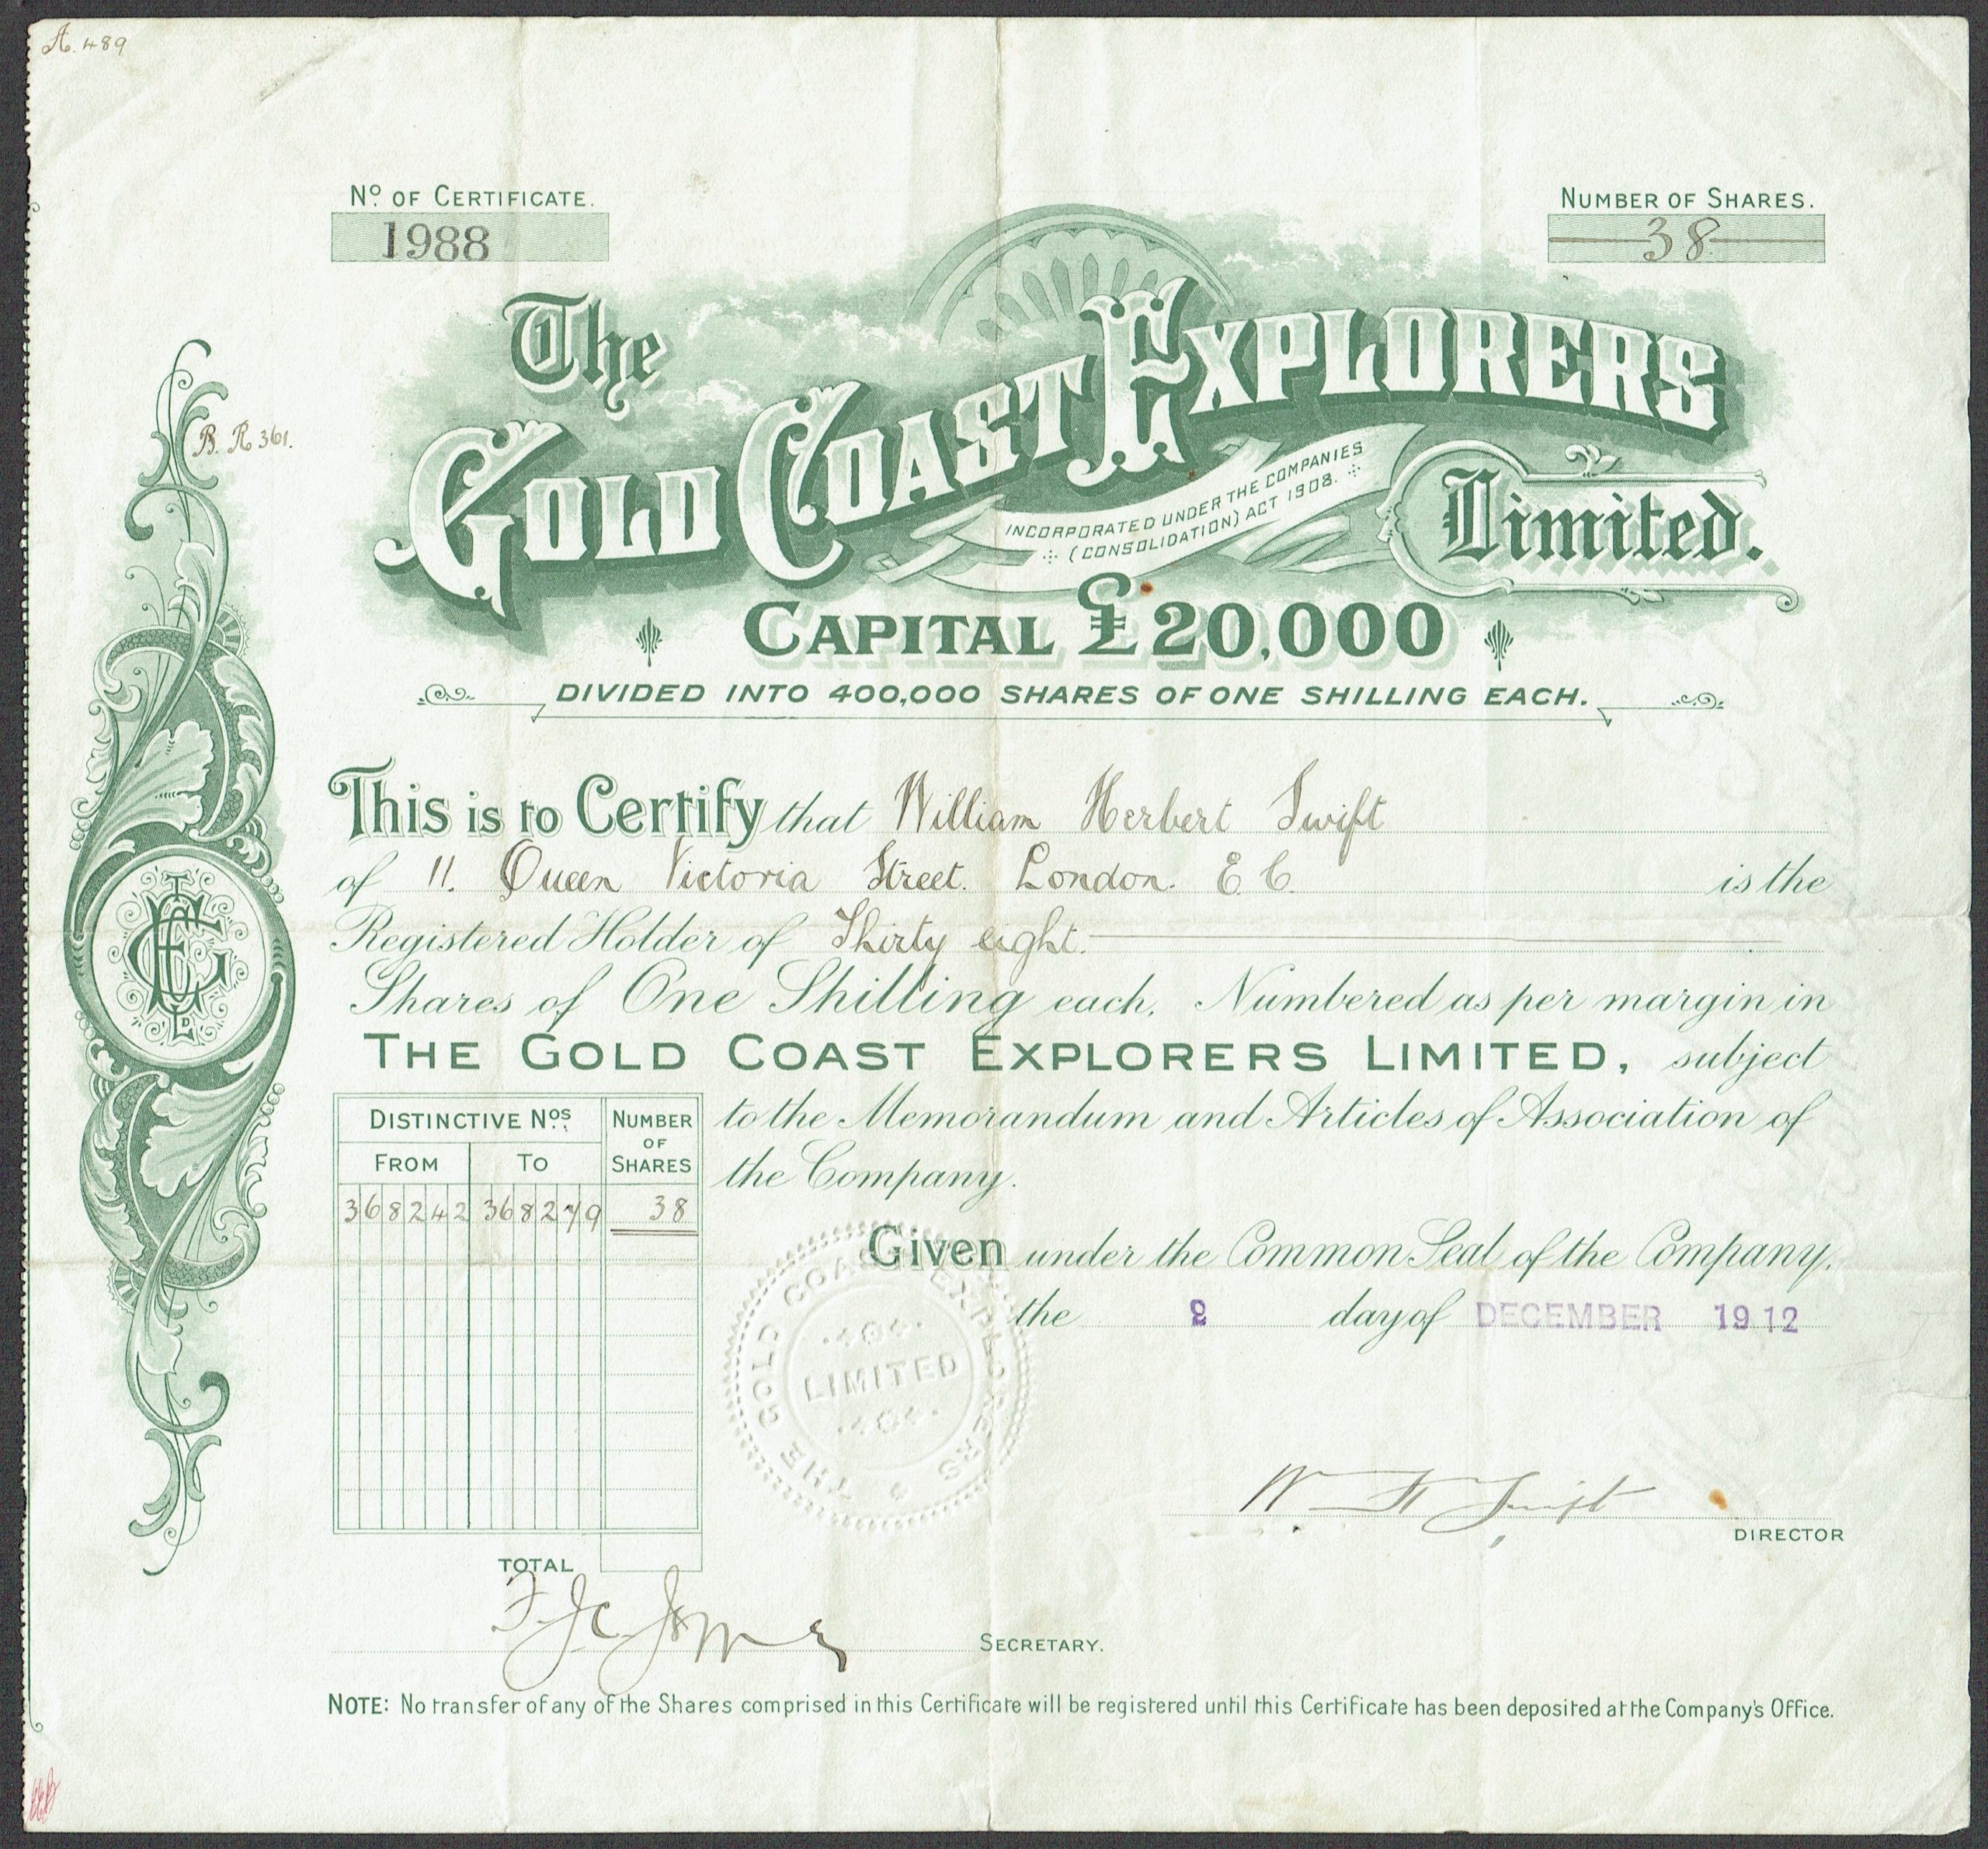 A. 489
No. OF CERTIFICATE.
1988
NUMBER OF SHARES.
38
The
GOLD COAST EXPLORERS
Limited.
INCORPORATED UNDER THE COMPANIES
(CONSOLIDATION) ACT 1908.
CAPITAL £20,000
DIVIDED INTO 400,000 SHARES OF ONE SHILLING EACH.
B. R 361.
This is to Certify that William Herbert Swift
of 11. Queen Victoria Street. London. E. C. is the
Registered Holder of Thirty eight.
Shares of One Shilling each, Numbered as per margin in
THE GOLD COAST EXPLORERS LIMITED, subject
to the Memorandum and Articles of Association of
the Company.
DISTINCTIVE Nos. NUMBER OF SHARES
FROM TO
368242 368279 38
TOTAL
Given under the Common Seal of the Company,
the 2 day of DECEMBER 1912
THE GOLD COAST EXPLORERS
LIMITED
W H Swift
DIRECTOR
SECRETARY.
NOTE: No transfer of any of the Shares comprised in this Certificate will be registered until this Certificate has been deposited at the Company's Office.